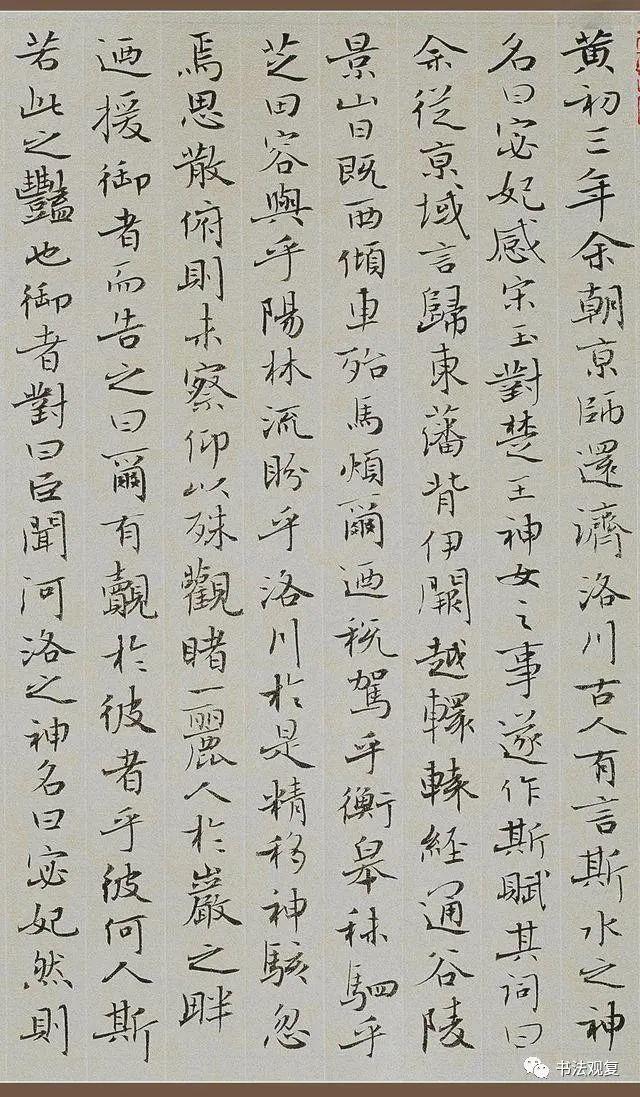 黄初三年余朝京師還濟洛川古人有言斯水之神
名曰宓妃感宋玉對楚王神女之事遂作斯賦其詞曰
余從京域言歸東藩背伊闕越轘轅經通谷陵
景山日既西傾車殆馬煩爾迺税駕乎蘅皋秣駟乎
芝田容與乎陽林流盼乎洛川於是精移神駭忽
焉思散俯則未察仰以殊觀睹一麗人於巖之畔
迺援御者而告之曰爾有覿於彼者乎彼何人斯
若此之豔也御者對曰臣聞河洛之神名曰宓妃然則
书法观复